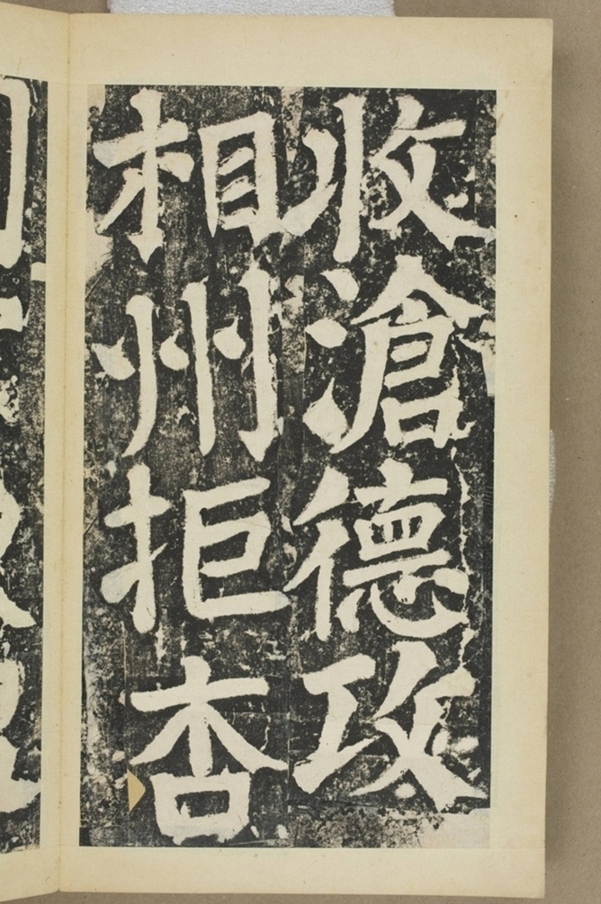 收滄德攻
相州拒杏